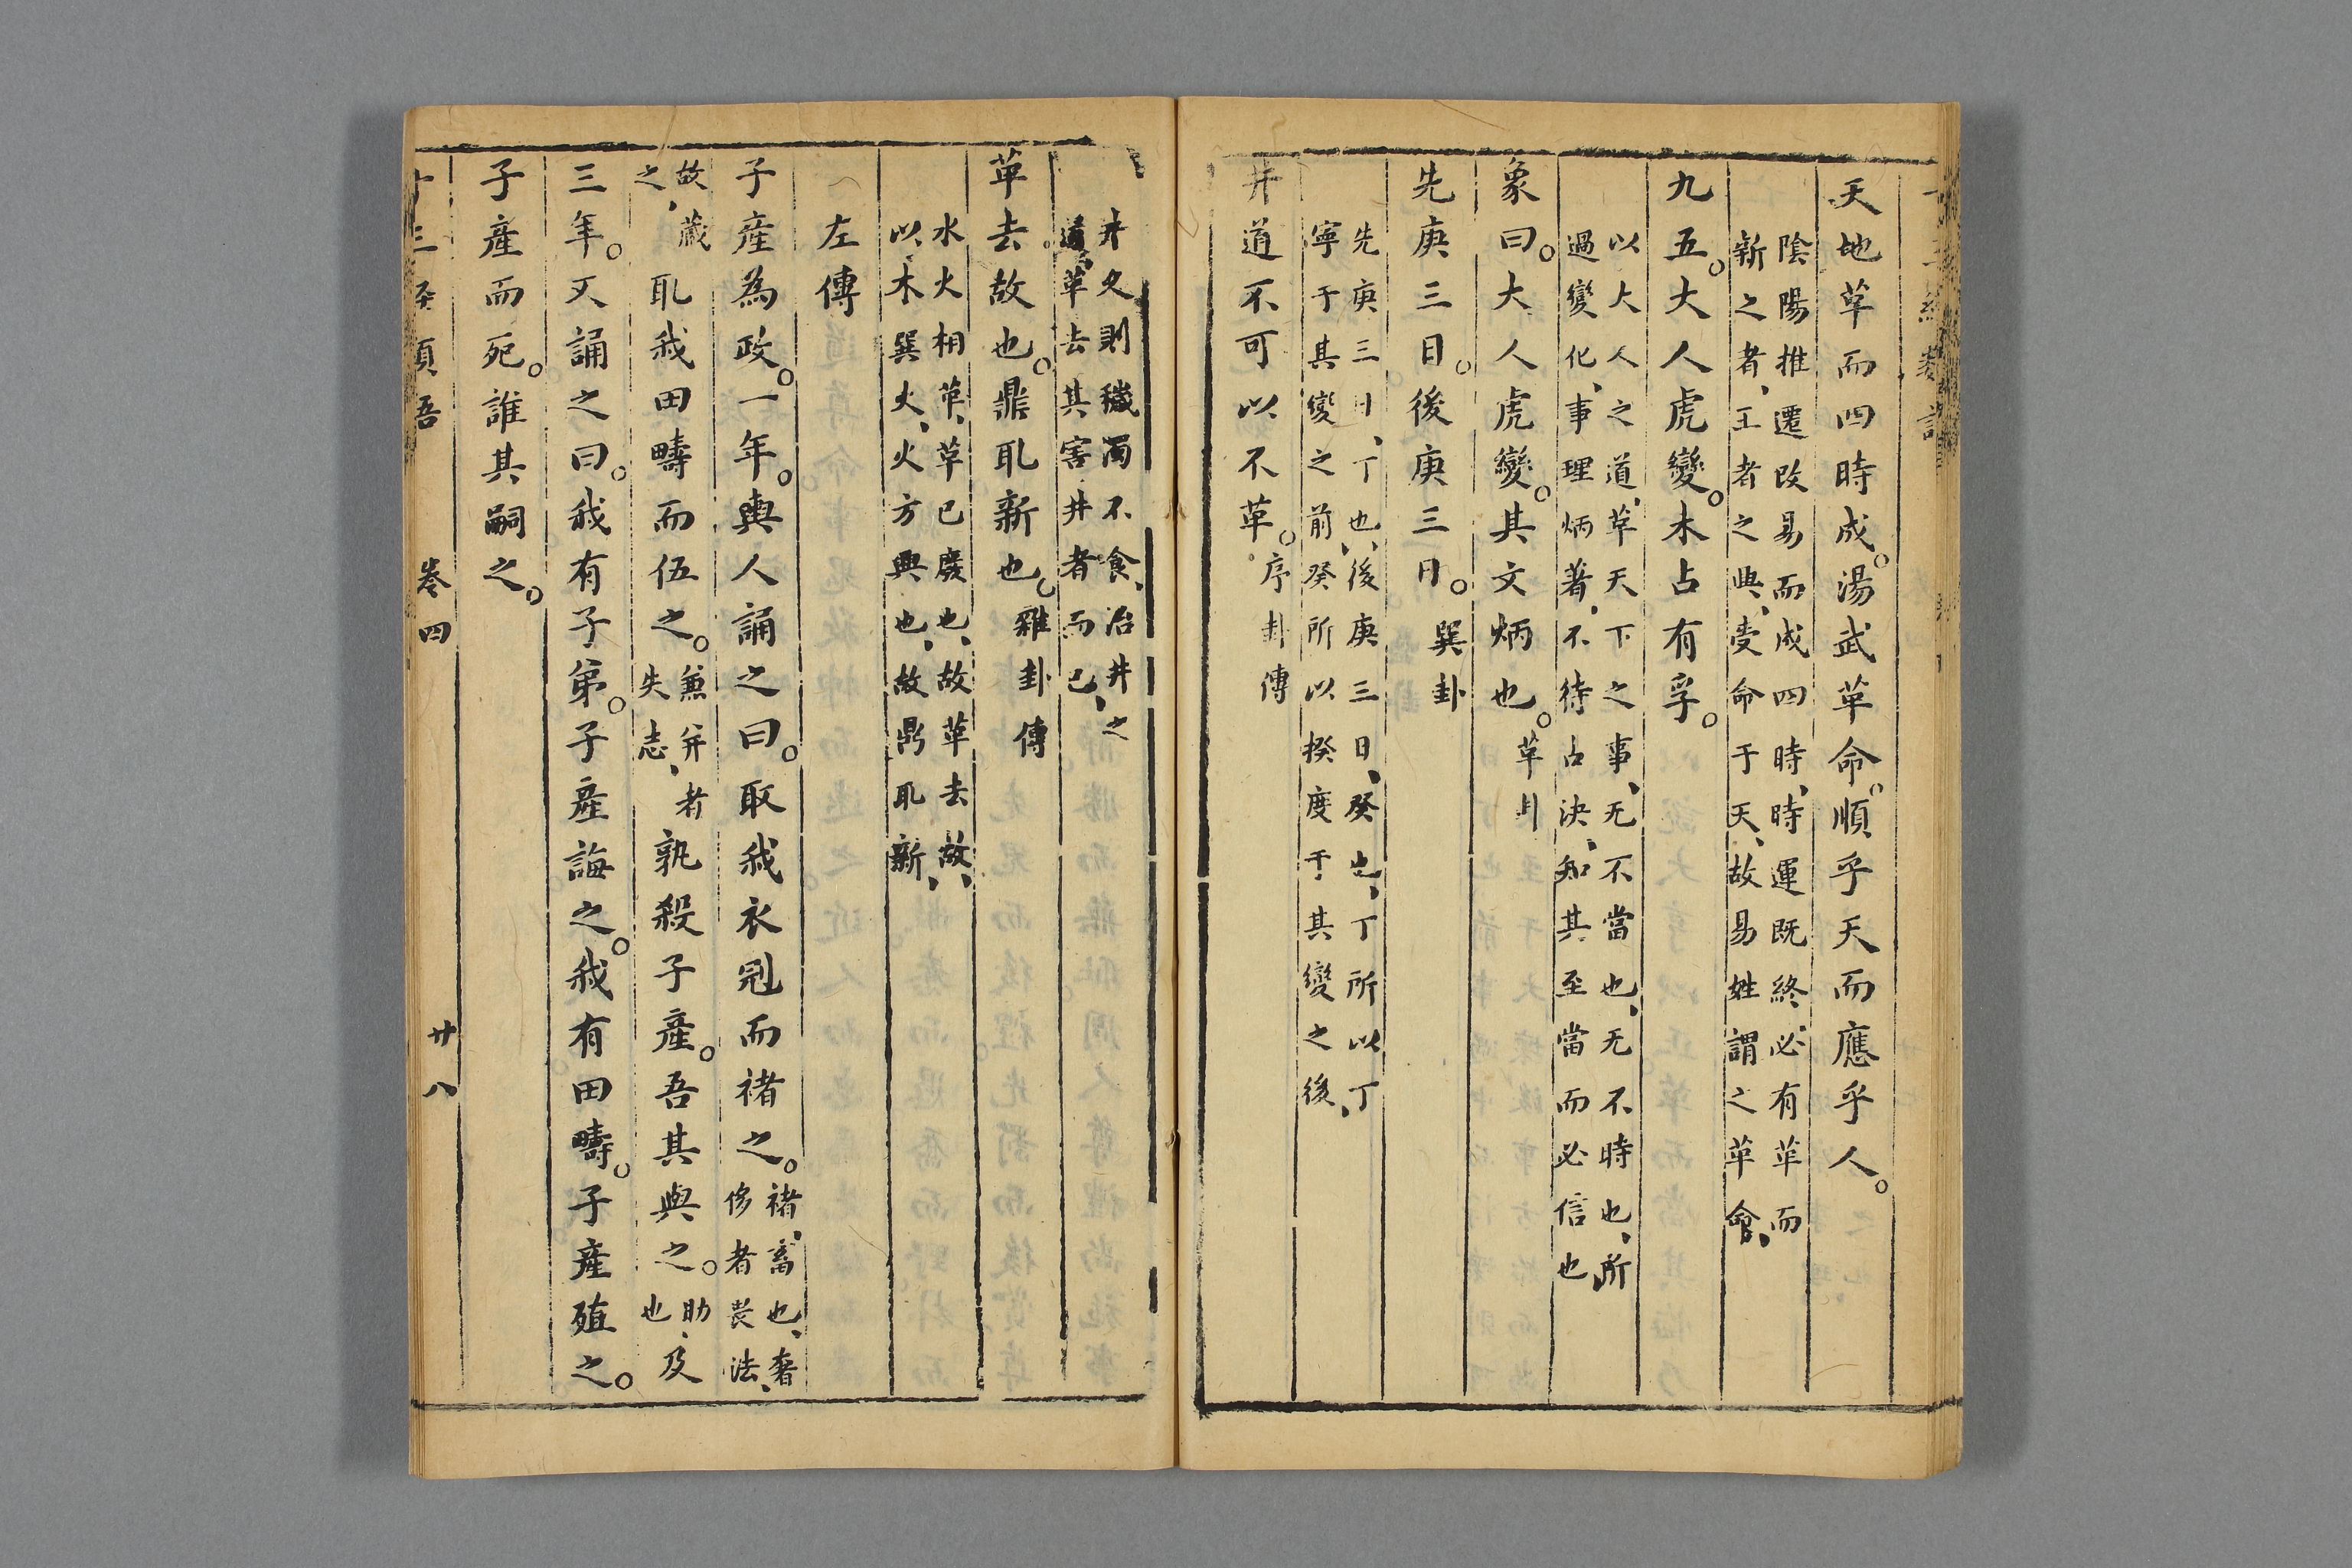 天地革而四時成。湯武革命。順乎天而應乎人。
陰陽推遷改易而成四時、時運既終必有革而
新之者、王者之興、受命于天、故易姓謂之革命、
九五。大人虎變。未占有孚。
以大人之道、革天下之事、无不當也、无不時也、所
過變化、事理炳著、不待占決、知其至當而必信也
象曰。大人虎變。其文炳也。革卦
先庚三日。後庚三日。巽卦
先庚三日、丁也、後庚三日、癸也、丁所以丁
寧于其變之前、癸所以揆度于其變之後、
井道不可以不革。序卦傳
井久則穢濁不食、治井之
道、革去其害井者而已、
革去故也。鼎取新也。雜卦傳
水火相革、革已廢也、故革去故、
以木巽火、火方興也、故鼎取新、
左傳
子產為政。一年。輿人誦之曰。取我衣冠而褚之。褚、畜也、奢
侈者畏法、
故藏
之、取我田疇而伍之。兼并者
失志、孰殺子產。吾其與之。助
也、及
三年。又誦之曰。我有子弟。子產誨之。我有田疇。子產殖之。
子產而死。誰其嗣之。
卷四 廿八